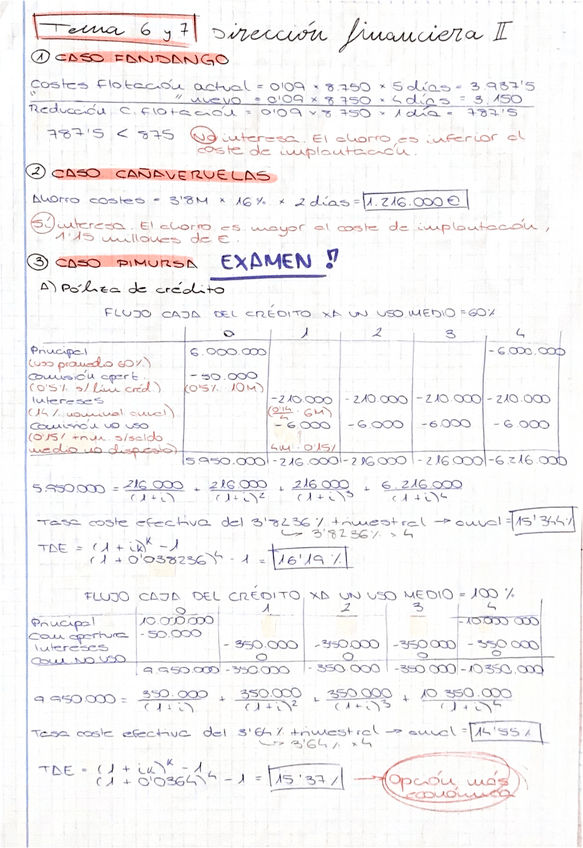 Tema 6 y 7 Dirección financiera II
① CASO FANDANGO
Costes Flotación actual = 0'09 × 8.750 × 5 días = 3.937'5
" " nuevo = 0'09 × 8.750 × 4 días = 3.150
Reducción C. Flotación = 0'09 × 8.750 × 1 día = 787'5
787'5 < 875 No interesa. El ahorro es inferior al
coste de implantación.
② CASO CAÑAVERUELAS
Ahorro costes = 3'8M × 16% × 2 días = 1.216.000 €
Sí interesa. El ahorro es mayor al coste de implantación,
1'15 millones de €.
③ CASO PIMURSA EXAMEN !!
A) Póliza de crédito
FLUJO CAJA DEL CRÉDITO XA UN USO MEDIO = 60%
0 1 2 3 4
Principal 6.000.000 -6.000.000
(uso promedio 60%)
Comisión apert. -50.000
(0'5% s/lím créd) (0'5% 10M)
Intereses -210.000 -210.000 -210.000 -210.000
(14% nominal anual) (0'14/4 · 6M)
Comisión no uso -6.000 -6.000 -6.000 -6.000
(0'15% trim. s/saldo
medio no dispuesto) 4M · 0'15%
5.950.000 -216.000 -216.000 -216.000 -6.216.000
5.950.000 = 216.000/(1+i) + 216.000/(1+i)² + 216.000/(1+i)³ + 6.216.000/(1+i)⁴
Tasa coste efectiva del 3'8236% trimestral → anual = 15'344%
↳ 3'8236% × 4
TDE = (1 + ik)ᵏ - 1
(1 + 0'038236)⁴ - 1 = 16'19%
FLUJO CAJA DEL CRÉDITO XA UN USO MEDIO = 100%
0 1 2 3 4
Principal 10.000.000 -10.000.000
Com apertura -50.000
Intereses -350.000 -350.000 -350.000 -350.000
Com no uso 0 0 0 0
9.950.000 -350.000 -350.000 -350.000 -10.350.000
9.950.000 = 350.000/(1+i) + 350.000/(1+i)² + 350.000/(1+i)³ + 10.350.000/(1+i)⁴
Tasa coste efectiva del 3'64% trimestral → anual = 14'55%
↳ 3'64% × 4
TDE = (1 + ik)ᵏ - 1
(1 + 0'0364)⁴ - 1 = 15'37% → Opción más
económica